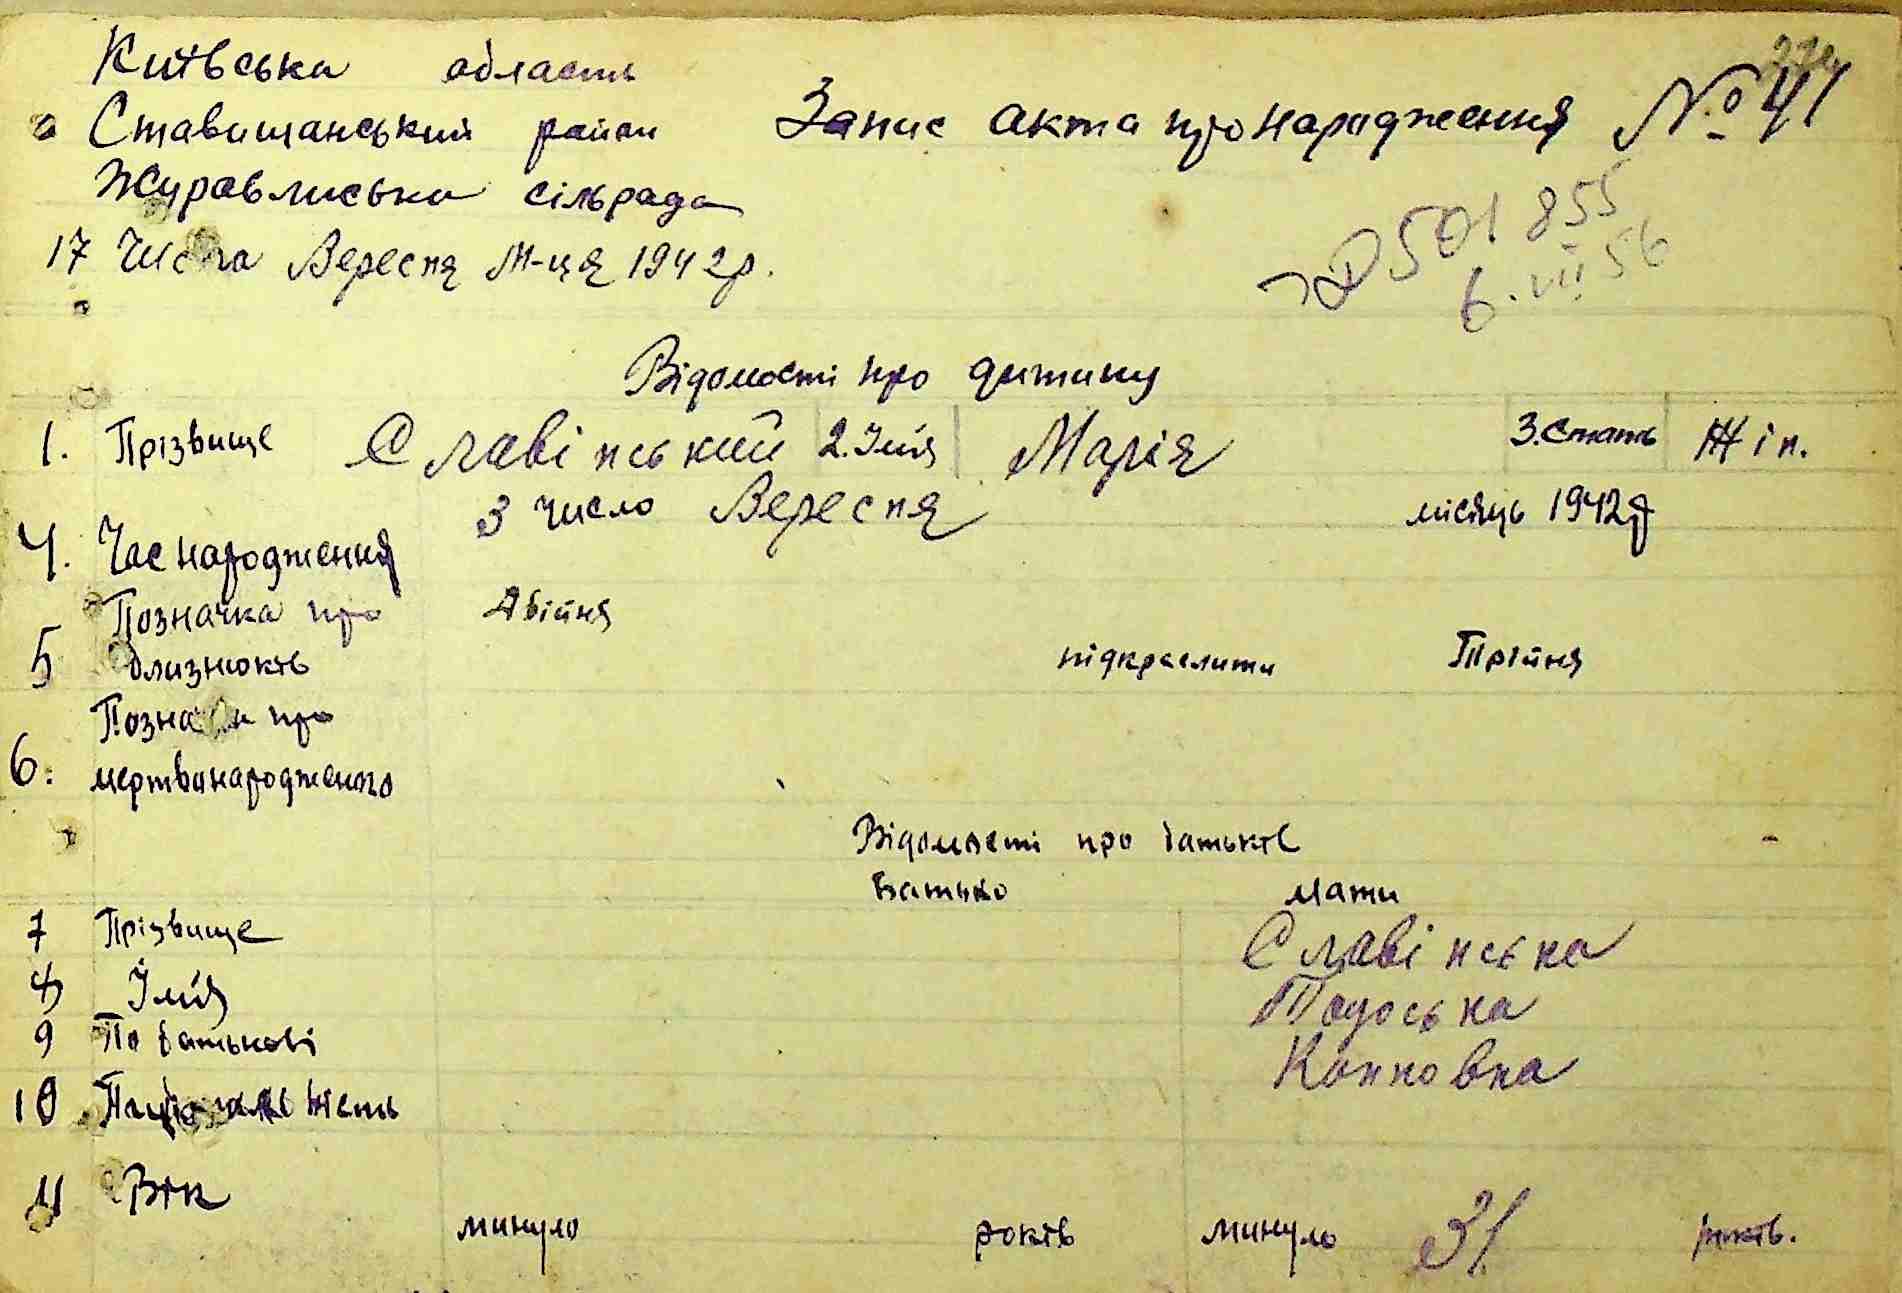 Київська область
Ставищанський район Запис акта про народження № 41
Журавлиська сільрада
17 Числа Вересня М-ця 1942р.
501855
6.VII 56
Відомості про дитину
1. Прізвище Славінський 2. Імя Марія 3. Стать Жін.
3 число Вересня місяць 1942р
4. Час народження
Позначка про Двійня
5 близнюків підкреслити Трійня
Позначка про
6. мертвонародженого
Відомості про батьків
Батько мати
7 Прізвище Славінська
8 Імя Тодоська
9 По батькові
10 Національність
11 Вік
минуло років минуло 31 років.